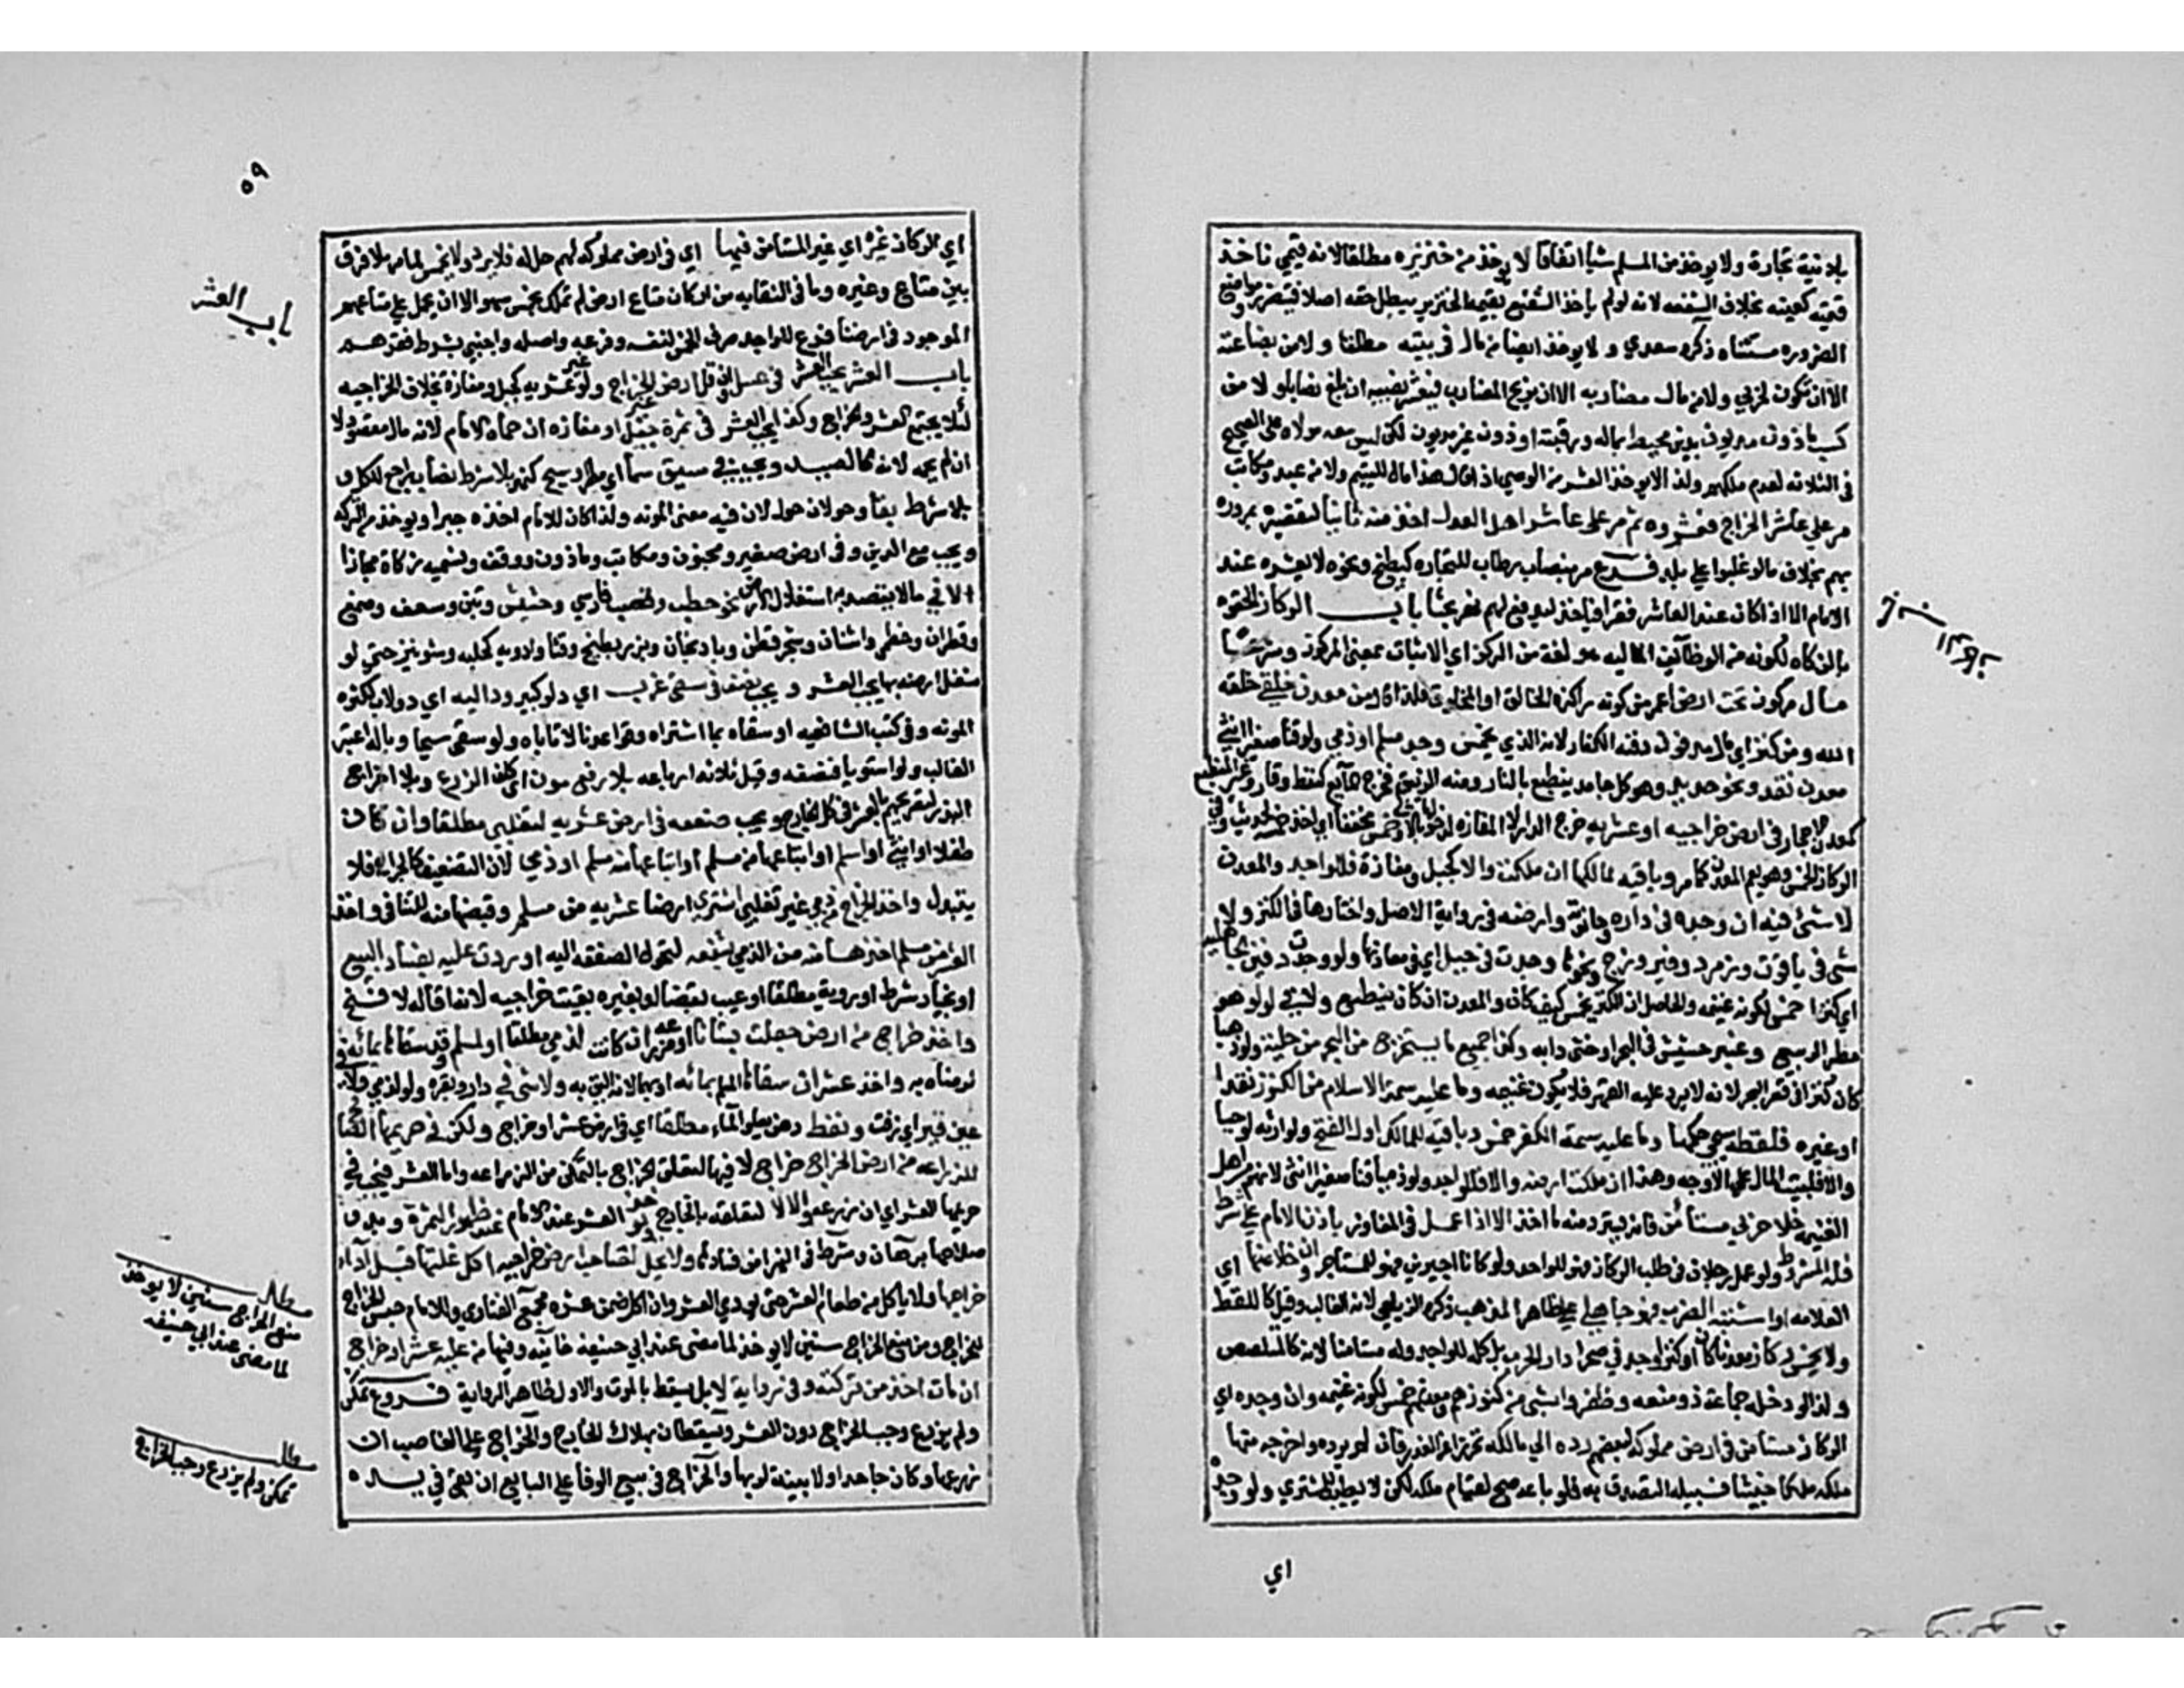 بلا نية تجارة ولا يوخذ من المسلم شيأ اتفاقا لا يوخذ من خنزيره مطلقا لانه قيمي فاخذ
قيمته كعينه بخلاف الشفعه لانه لو لم يأخذ الشفيع بقيمة الخنزير يبطل حقه اصلا فيتضرر ومواضع
الضروره مستثناه ذكره سعدي ولا يوخذ ايضا من مال في بيته مطلقا ولا من بضاعته
الا ان تكون لحربي ولا من مال مضاربه الا ان يربح المضارب فيعشر نصيبه ان بلغ نصابا ولا من
كسب ماذون مديون بدين محيط بماله ورقبته او ذون غير مديون لكن ليس معه مولاه على الصحيح
في الثلاثه لعدم ملكهم ولذا لا يوخذ العشر من الوصي اذا قال هذا مال لليتيم ولا من عبد ومكاتب
مر على عاشر الخراج فعشروه ثم مر على عاشر اهل العدل اخذ منه ثانيا لتقصيره بمروره
بهم بخلاف ما لو غلبوا على بلد فرع مر بنصاب رطاب للتجاره كبطيخ ونحوه لا يعشره عند
الامام الا اذا كان عند العاشر فقرا فياخذ ليدفع لهم نهر بحثا باب الركاز الحقوه
بالزكاه لكونه من الوظائف الماليه هو لغة من الركز اي الاثبات بمعنى المركوز وشرعا
مال مركوز تحت ارض اعم من كونه راكزه الخالق او المخلوق فلذا قال من معدن خلقي خلقه
الله ومن كنز اي مال مدفون دفنه الكفار لانه الذي يخمس وجد مسلم او ذمي ولو قنا صغيرا انثى
معدن نقد ونحو حديد وهو كل جامد ينطبع بالنار ومنه الزيبق فخرج المآئع كنفط وقار وغير المنطبع
كمعدن احجار في ارض خراجيه او عشريه خرج الدار لا المفازه خمس مخففا اي اخذ خمسه لحديث وفي
الركاز الخمس وهو يعم المعدن كما مر وباقيه لمالكها ان ملكت والا كجبل ومفازة فللواجد والمعدن
لا شئ فيه ان وجده في داره وحانوته وارضه في رواية الاصل واختارها في الكنز ولا
شئ في ياقوت وزمرد وفيروزج ونحوها وجدت في جبل اي في معادنها ولو وجدت دفين الجاهليه
اي كنزا خمس لكونه غنيمه والحاصل ان الكنز يخمس كيف كان والمعدن ان كان ينطبع ولا في لولو هو
مطر الربيع وعنبر حشيش في البحر او خثي دابه وكذا جميع ما يستخرج من البحر من حلية ولو ذهبا
كان كنزا في قعر البحر لانه لا يرد عليه القهر فلا يكون غنيمه وما عليه سمة الاسلام من الكنوز نقدا
او غيره فلقطه سيجي حكمها وما عليه سمة الكفر خمس وباقيه للمالك اول الفتح ولوارثه لو حيا
والا فلبيت المال على الاوجه وهذا ان ملكت ارضه والا فللواجد ولو ذميا قنا صغيرا انثى لانهم من اهل
الغنيمه خلا حربي مستأمن فانه يسترد منه ما اخذ الا اذا عمل في المفاوز باذن الامام على شرط
فله المشروط ولو عمل رجلان في طلب الركاز فهو للواجد ولو كانا اجيرين فهو للمستأجر وان خلا عنها اي
العلامه او اشتبه الضرب فهو جاهلي على ظاهر المذهب ذكره الزيلعي لانه الغالب وقيل كاللقطه
ولا يخمس ركاز معدنا كان او كنزا وجد في صحرا دار الحرب بل كله للواجد ولو مستامنا لانه كالمتلصص
ولذا لو دخله جماعة ذو منعه وظفروا بشئ من كنوزهم ومعدنهم خمس لكونه غنيمه وان وجده اي
الركاز مستأمن في ارض مملوكه لبعضهم رده الى مالكه تحرزا عن الغدر فان لم يرده واخرجه منها
ملكه ملكا خبيثا فسبيله التصدق به فلو باعه صح لقيام ملكه لكن لا يطيب للمشتري ولو وجده
اي
٥٩
اي الركاز غيره اي غير المستأمن فيها اي في ارض مملوكه لهم حل له فلا يرد ولا يخمس لما مر بلا فرق
بين متاع وغيره وما في النقايه من ان ركاز متاع ارض لم تملك يخمس سهو الا ان يحمل على متاعهم
الموجود في ارضنا فرع للواجد صرف الخمس لنفسه وفرعه واصله واجنبي بشرط فقرهم
باب العشر يجب العشر في عسل وان قل ارض غير الخراج ولو غير عشريه كجبل ومفازة بخلاف الخراجيه
لئلا يجتمع العشر والخراج وكذا يجب العشر في ثمرة جبل او مفازه ان حماه الامام لانه مال مقصود لا
ان لم يحمه لانه كالصيد ويجب في مسقي سما اي مطر وسيح كنهر بلا شرط نصاب راجع للكل و
بلا شرط بقا وحولان حول لان فيه معنى المونه ولذا كان للامام اخذه جبرا ويوخذ من التركه
ويجب مع الدين وفي ارض صغير ومجنون ومكاتب وماذون ووقف وتسميته زكاة مجازا
الا في ما لا يقصد به استغلال الارض نحو حطب وقصب فارسي وحشيش وتبن وسعف وصمغ
وقطران وخطمي واشنان وشجر قطن وباذنجان وبزر بطيخ وقثا وادويه كحلبه وشونيز حتى لو
شغل ارضه بها يجب العشر ويجب نصفه في مسقي غرب اي دلو كبير وداليه اي دولاب لكثرة
المونه وفي كتب الشافعيه او سقاه بما اشتراه وقواعدنا لا تاباه ولو سقى سيحا وبآلة اعتبر
الغالب ولو استويا فنصفه وقيل ثلاثه ارباعه بلا رفع مون اي كلف الزرع وبلا اخراج
البذر لتصريحهم بالعشر في كل الخارج ويجب ضعفه في ارض عشريه لتغلبي مطلقا وان كان
طفلا او انثى او اسلم او ابتاعها من مسلم او ابتاعها منه مسلم او ذمي لان التضعيف كالخراج فلا
يتبدل واخذ الخراج من ذمي غير تغلبي اشترى ارضا عشريه من مسلم وقبضها منه للتنافي واخذ
العشر من مسلم اخذها منه من الذمي بشفعه لتحول الصفقه اليه او ردت عليه لفساد البيع
او بخيار شرط او روية مطلقا او عيب بقضا ولو بغيره بقيت خراجيه لانه اقاله لا فسخ
واخذ خراج من ارض جعلت بستانا او مزرعه ان كانت لذمي مطلقا او لمسلم وقد سقاها بمائه
لرضاه به واخذ عشر ان سقاها المسلم بمائه او بهما لانه اليق به ولا شئ في دار ومقبره ولو لذمي ولا في
عين قير اي زفت ونفط دهن يعلو المآء مطلقا اي في ارض عشر او خراج ولكن في حريمها الصالح
للزراعه من ارض الخراج خراج لا فيها لتعلق الخراج بالتمكن من الزراعه واما العشر فيجب في
حريمها العشري ان زرعه والا لا لتعلقه بالخارج يوخذ العشر عند الامام عند ظهور الثمرة وبدو
صلاحها برهان وشرط في النهر امن فسادها ولا يحل لصاحب ارض خراجيه اكل غلتها قبل ادآء
خراجها ولا ياكل من طعام العشر حتى يودي العشر وان اكل ضمن عشره مجمع الفتاوى وللامام حبس الخارج
للخراج ومن منع الخراج سنين لا يوخذ لما مضى عند ابي حنيفه خانيه وفيها من عليه عشر او خراج
ان مات اخذ من تركته وفي رواية لا بل يسقط بالموت والاول ظاهر الرواية فروع تمكن
ولم يزرع وجب الخراج دون العشر ويسقطان بهلاك الخارج والخراج على الغاصب ان
زرعها وكان جاحدا ولا بينة لربها والخراج في بيع الوفا على البايع ان بقي في يده
باب العشر
مطلب
منع الخراج سنين لا يوخذ
لما مضى عند ابي حنيفه
مطلب
تمكن ولم يزرع وجب الخراج